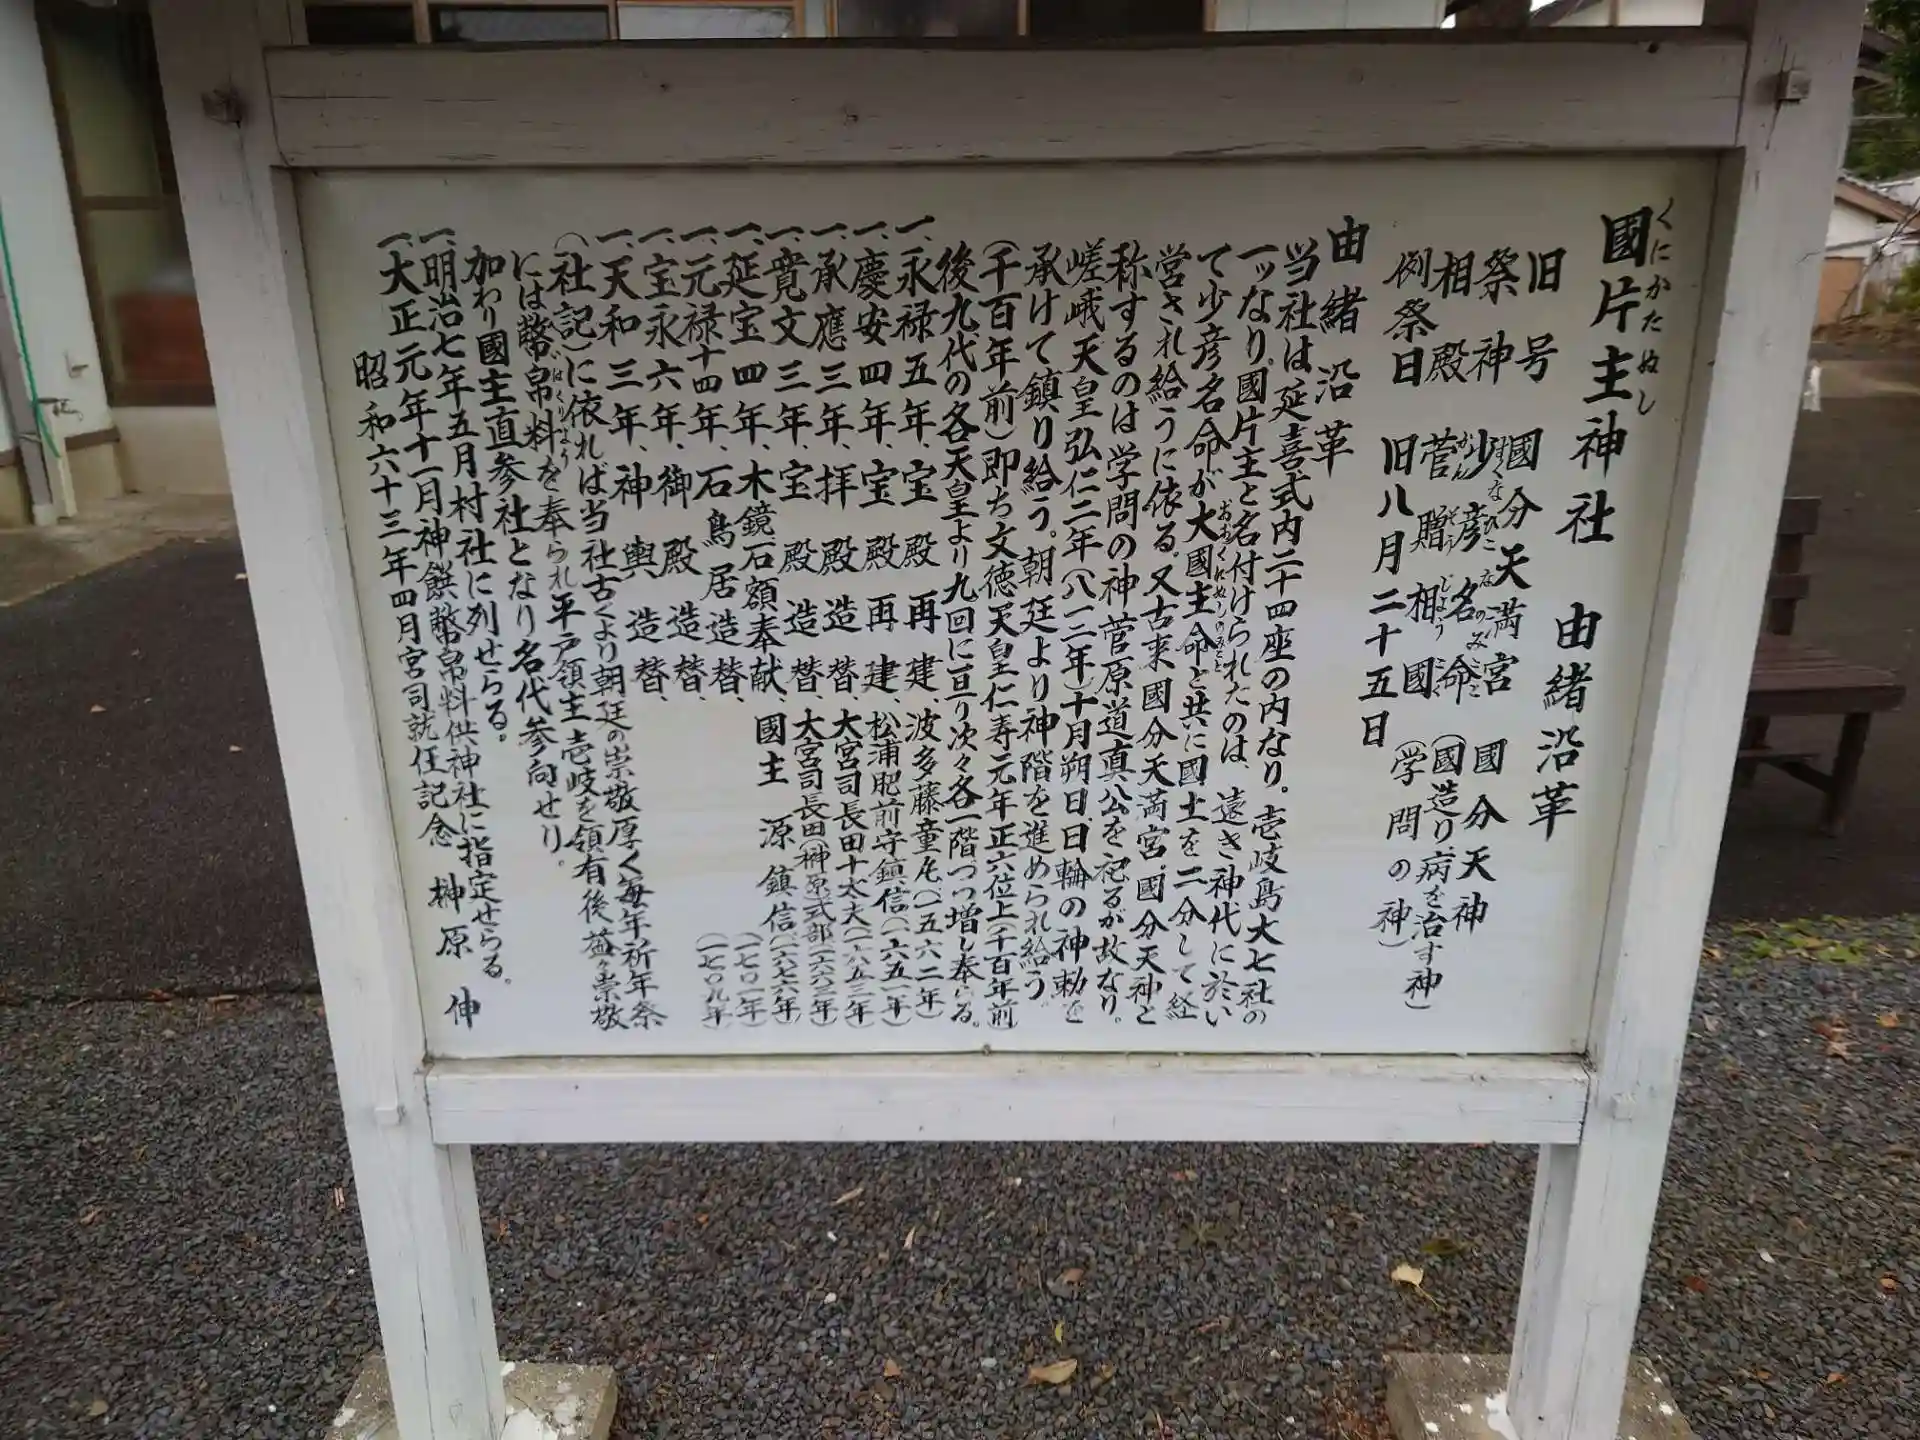 國片主神社　由緒沿革
くにかたぬし
旧号　國分天満宮　國分天神
祭神　少彦名命（國造り、病を治す神）
すくなひこなのみこと
相殿　菅贈相國（学問の神）
かんぞうじょうこく
例祭日　旧八月二十五日
由緒沿革
当社は延喜式内二十四座の内なり。壱岐島大七社の
一ッなり。國片主と名付けられたのは、遠き神代に於い
て少彦名命が大國主命と共に國土を二分して経
おおくにぬしのみこと
営され給うに依る。又古来國分天満宮、國分天神と
称するのは学問の神菅原道真公を祀るが故なり。
嵯峨天皇弘仁二年（八一二年）十月朔日、日輪の神勅を
承けて鎮り給う。朝廷より神階を進められ給う。
（千百年前）即ち文徳天皇仁寿元年正六位上（千百年前）
後九代の各天皇より九回に亘り次々各一階づつ増し奉らる。
一、永禄五年、宝殿再建、波多藤童丸（一五六二年）
一、慶安四年、宝殿再建、松浦肥前守鎮信（一六五一年）
一、承應三年、拝殿造替、大宮司長田十太夫（一六五三年）
一、寛文三年、宝殿造替、大宮司長田（榊原）式部（一六六三年）
一、延宝四年、木鏡、石額奉献、國主　源鎮信（一六七六年）
一、元禄十四年、石鳥居造替、（一七〇一年）
一、宝永六年、御殿造替、（一七〇九年）
一、天和三年、神輿造替、
（社記）に依れば当社古くより朝廷の崇敬厚く毎年祈年祭
には幣帛料を奉られ平戸領主壱岐を領有後益々崇敬
はくりよう
加わり國主直参社となり名代参向せり。
一、明治七年五月村社に列せらる。
一、大正元年十一月神饌幣帛料供神社に指定せらる。
昭和六十三年四月宮司就任記念　榊原　伸